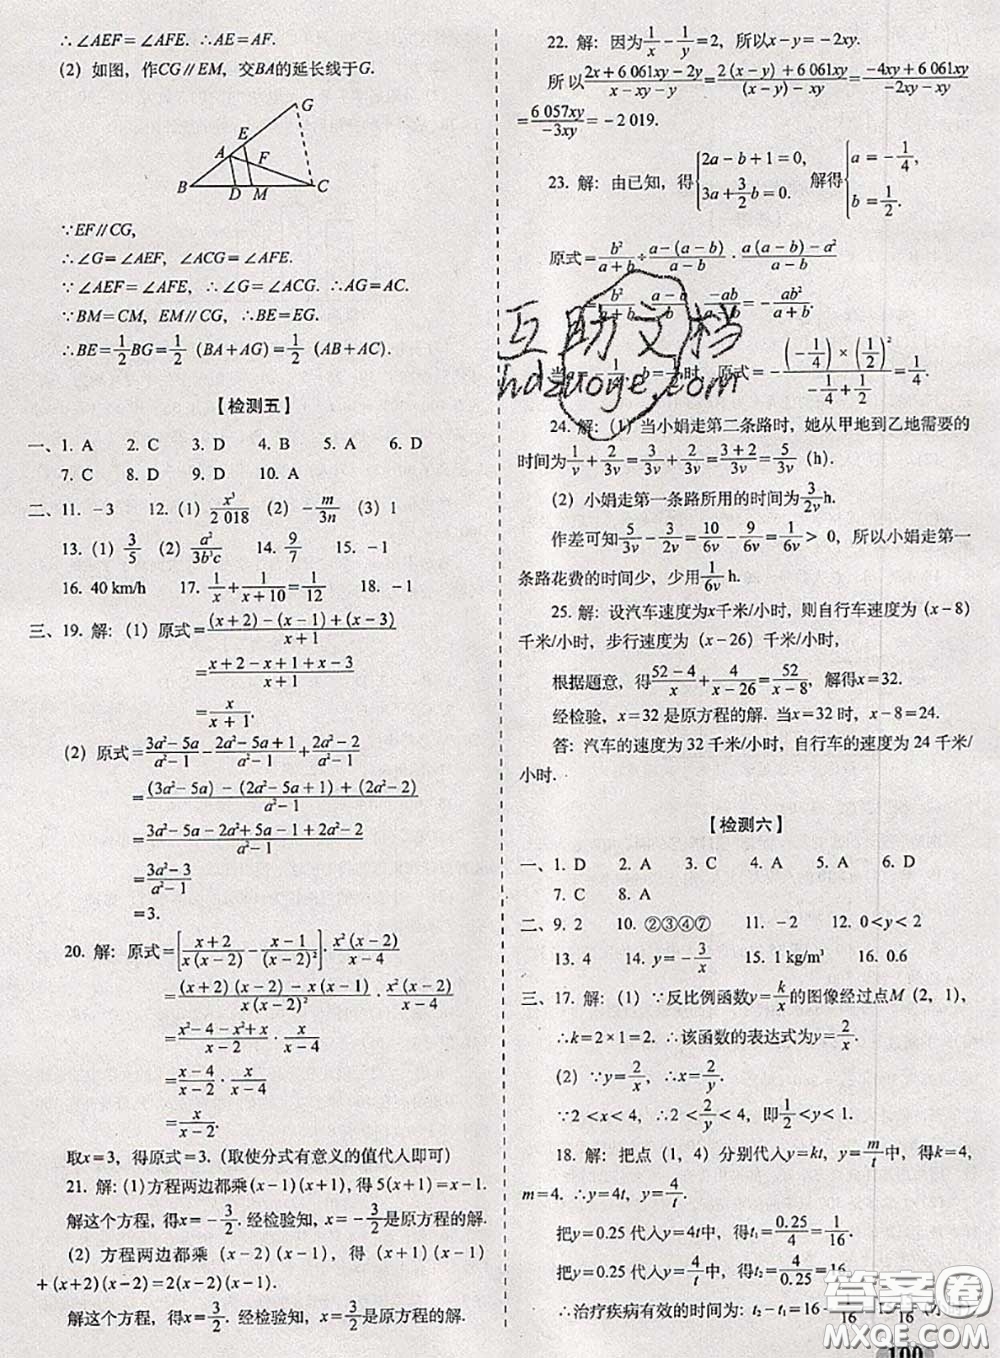 ∴∠AEF=∠AFE. ∴AE=AF.
(2) 如图，作CG∥EM，交BA的延长线于G.
G
E
A
F
B
D
M
C
∵EF∥CG,
∴∠G=∠AEF，∠ACG=∠AFE.
∵∠AEF=∠AFE，∴∠G=∠ACG. ∴AG=AC.
∵BM=CM，EM∥CG，∴BE=EG.
∴BE=1/2BG=1/2 (BA+AG)=1/2 (AB+AC).
【检测五】
一、1. A 2. C 3. D 4. B 5. A 6. D
7. C 8. D 9. D 10. A
二、11. -3 12. (1) x³/2 018 (2) -m/3n (3) 1
13. (1) 3/5 (2) a²/3b³c 14. 9/7 15. -1
16. 40 km/h 17. 1/x+1/(x+10)=1/12 18. -1
三、19. 解：(1) 原式=((x+2)-(x-1)+(x-3))/(x+1)
=(x+2-x+1+x-3)/(x+1)
=x/(x+1).
(2) 原式=(3a²-5a)/(a²-1)-(2a²-5a+1)/(a²-1)+(2a²-2)/(a²-1)
=((3a²-5a)-(2a²-5a+1)+(2a²-2))/(a²-1)
=(3a²-5a-2a²+5a-1+2a²-2)/(a²-1)
=(3a²-3)/(a²-1)
=3.
20. 解：原式=[(x+2)/(x(x-2))-(x-1)/(x-2)²]·x²(x-2)/(x-4)
=((x+2)(x-2)-x(x-1))/(x(x-2)²)·x²(x-2)/(x-4)
=(x²-4-x²+x)/(x-2)·x/(x-4)
=(x-4)/(x-2)·x/(x-4)
=x/(x-2).
取x=3，得原式=3.（取使分式有意义的值代人即可）
21. 解：(1)方程两边都乘(x-1)(x+1)，得5(x+1)=x-1.
解这个方程，得x=-3/2. 经检验知，x=-3/2是原方程的解.
(2) 方程两边都乘 (x-2)(x-1)，得 (x+1)(x-1)
+(x+2)(x-2)=2(x-2)(x-1).
解这个方程，得x=3/2. 经检验知，x=3/2是原方程的解.
22. 解：因为1/x-1/y=2，所以x-y=-2xy.
所以(2x+6 061xy-2y)/(x-xy-y)=(2(x-y)+6 061xy)/((x-y)-xy)=(-4xy+6 061xy)/(-2xy-xy)
=6 057xy/-3xy=-2 019.
23. 解：由已知，得{2a-b+1=0, 3a+3/2b=0. 解得{a=-1/4, b=1/2.
原式=b²/(a+b)÷(a-(a-b))/(a-b)·(a(a-b)-a²)/(a-b)
=b²/(a+b)·(a-b)/b·-ab/(a-b)=-ab²/(a+b).
当a=-1/4，b=1/2时，原式=-((-1/4)×(1/2)²)/(-1/4+1/2)=1/4.
24. 解：(1) 当小娟走第二条路时，她从甲地到乙地需要的
时间为1/v+2/3v=3/3v+2/3v=(3+2)/3v=5/3v (h).
(2) 小娟走第一条路所用的时间为3/2v h.
作差可知5/3v-3/2v=10/6v-9/6v=1/6v>0，所以小娟走第一
条路花费的时间少，少用1/6v h.
25. 解：设汽车速度为x千米/小时，则自行车速度为 (x-8)
千米/小时，步行速度为 (x-26) 千米/小时，
根据题意，得(52-4)/x+4/(x-26)=52/(x-8)，解得x=32.
经检验，x=32 是原方程的解. 当x=32 时，x-8=24.
答：汽车的速度为 32 千米/小时，自行车的速度为 24 千米/
小时.
【检测六】
一、1. D 2. A 3. C 4. A 5. A 6. D
7. C 8. A
二、9. 2 10. ②③④⑦ 11. -2 12. 0<y<2
13. 4 14. y=-3/x 15. 1 kg/m³ 16. 0.6
三、17. 解：(1) ∵反比例函数y=k/x的图像经过点M (2，1)，
∴k=2×1=2. ∴该函数的表达式为y=2/x.
(2) ∵y=2/x，∴x=2/y.
∵2<x<4，∴2<2/y<4，即1/2<y<1.
18. 解：把点 (1，4) 分别代入y=kt，y=m/t中，得k=4，
m=4. ∴y=4t，y=4/t.
把y=0.25 代入y=4t中，得t₁=0.25/4=1/16.
把y=0.25 代入y=4/t中，得t₂=4/0.25=16.
∴治疗疾病有效的时间为：t₂-t₁=16-
16
16
互助文档
hdzuoye.com
答案圈
MXQE.COM
100